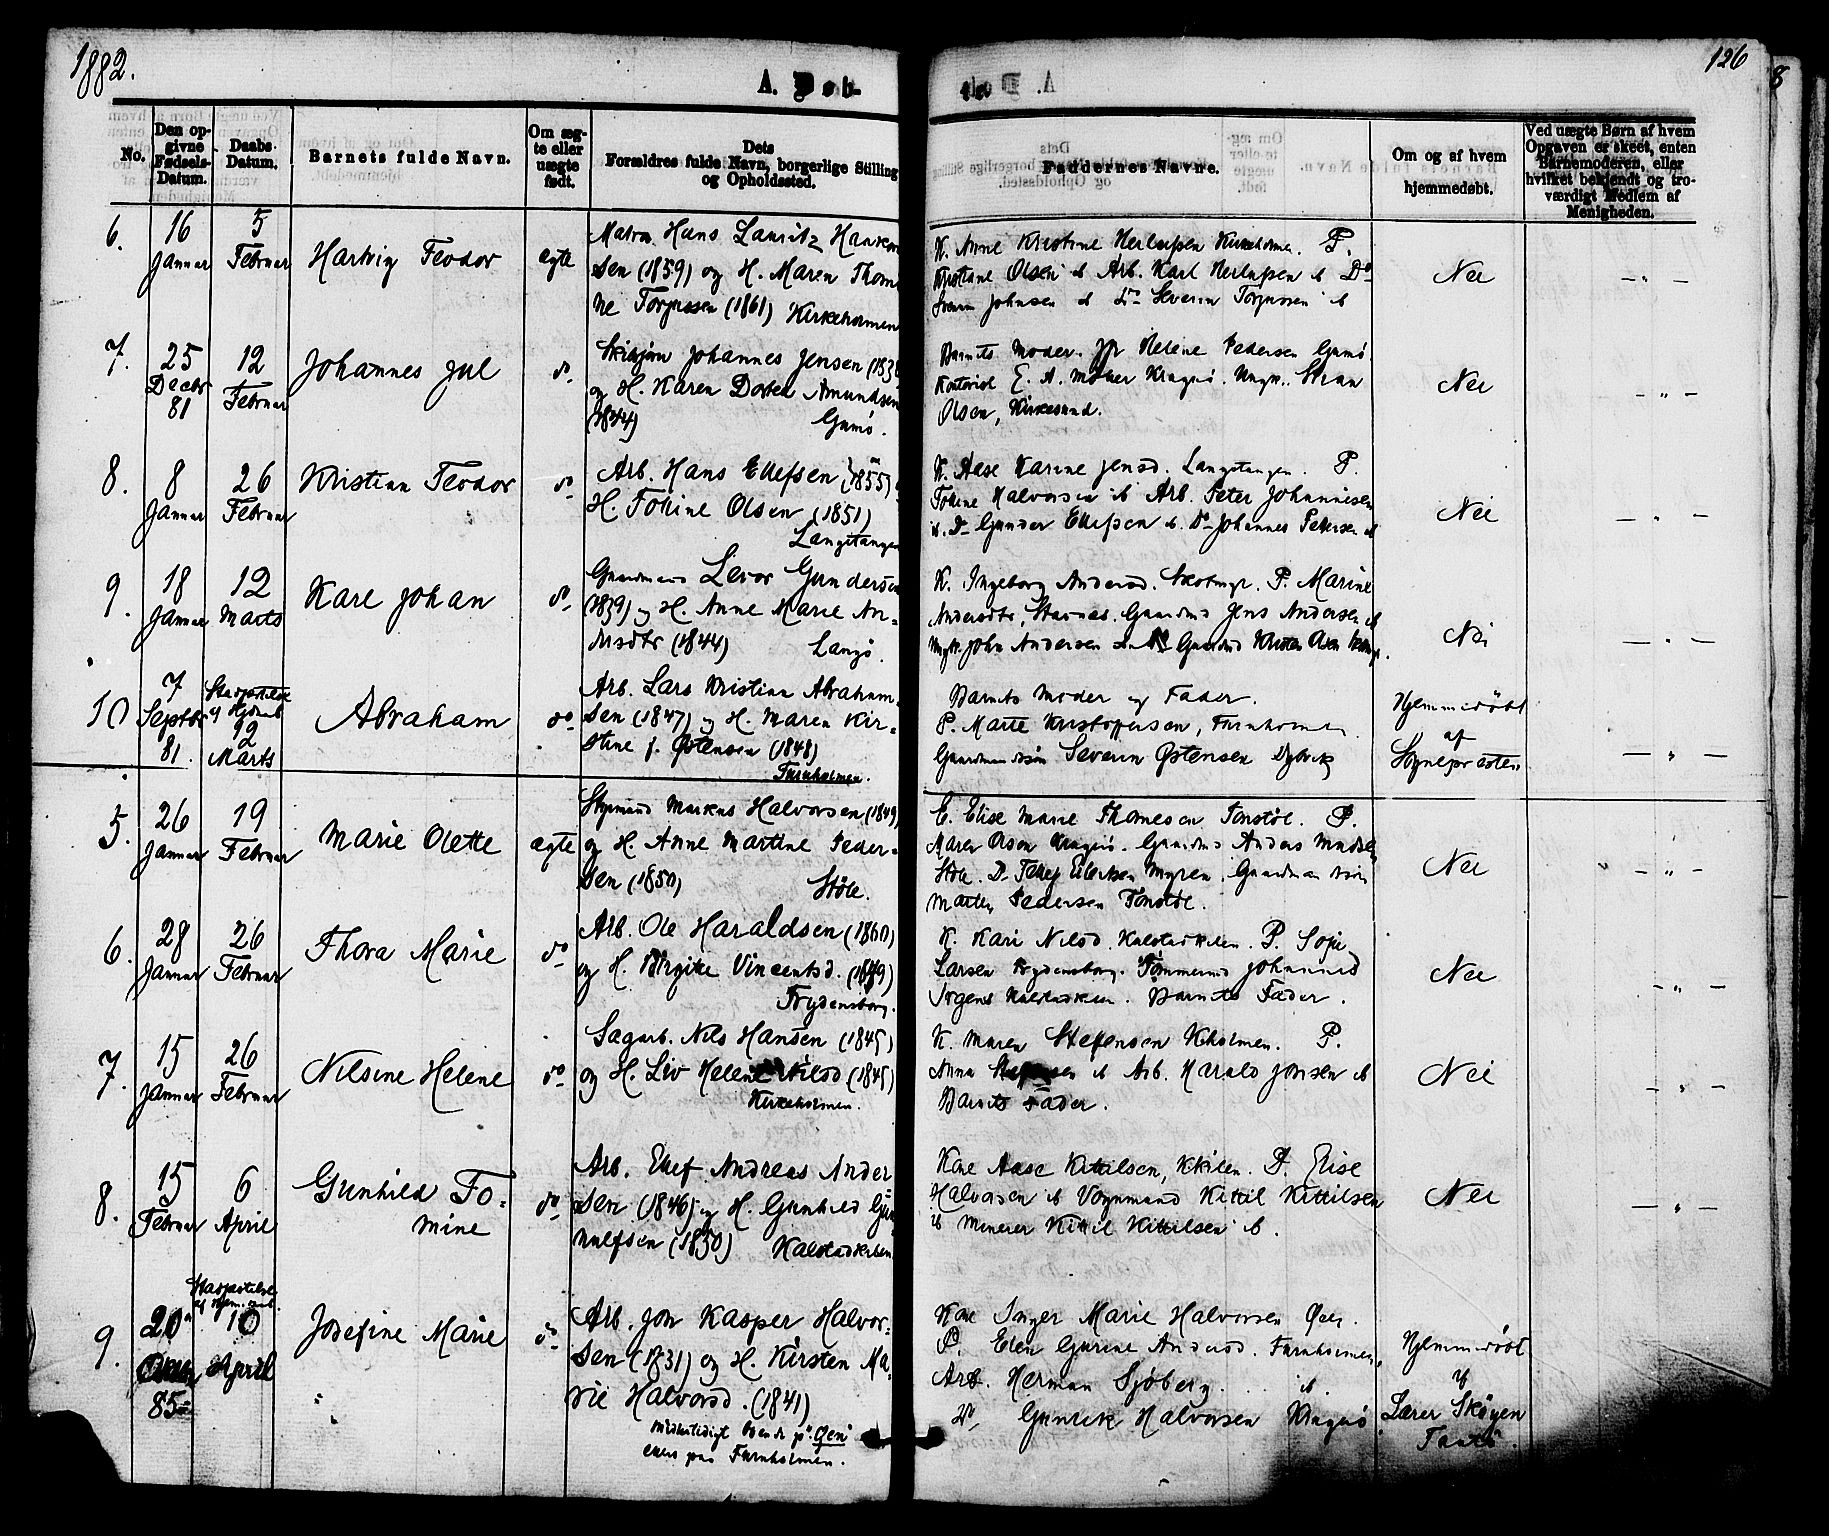 1882.
126
A. Døb-
No.
Den op-
givne
Fødsels-
Datum.
Daabs-
Datum.
Barnets fulde Navn.
Om æg-
te eller
uægte
født.
Dets
Forældres fulde Navn, borgerlige Stilling
og Opholdssted.
Faddernes Navne.
Om og af hvem
hjemmedøbt.
Ved uægte Børn af hvem
Opgaven er skeet, enten
Barnemoderen, eller
hvilket bekjendt og tro-
værdigt Medlem af
Menigheden.
6.
16
Januar
5
Februar
Hartvig Teodor
ægte
Matros Hans Lauritz Hansen
sen (1859) og H. Maren Thom
ine Torgussen (1861) Kirkeholmen
K. Anne Kristine Herlufsen Kirkeholmen. P.
Kristiane Olsen ib Arb. Karl Herlufsen ib Do
Johnsen ib Do Severin Torgussen ib
Nei
— „ —
7.
25
Decbr
81
12
Februar
Johannes Jul
do
Johannes Jensen (183
og H. Karen Dortea Amundsen
(1844) Gumø.
Barnets Moder. Jfr Helene Pedersen Gumø.
E. A. Kragerø. Ungk.
Olsen, Kirkesund.
Nei
— „ —
8.
8
Januar
26
Februar
Kristian Teodor
do
Arb. Hans Ellefsen (1855)
H. Tomine Olsen (1851)
Langetangen
K. Aase Karine Jensd. Langetangen. P.
Tomine Halvorsen ib Arb. Peter Johannesen
ib. Do Gunder Ellefsen ib. Do Johannes Pettersen ib
Nei
— „ —
9.
18
Januar
12
Marts
Karl Johan
do
Gaardmand Levor Gundersen
(1839) og H. Anne Marie An-
dersdtr (1844) Langø.
K. Ingeborg Andersd. P. Marine
Andersdtr, Gaardmd Jens Andersen ib
Ungk. John Andersen Gaardmd Kristen Olsen
Nei
— „ —
10
7
Septbr
81.
Stadfæstelse
af Hjdaab
12
Marts
Abraham
do
Arb. Lars Kristian Abraham-
sen (1847) og H. Maren Kir-
stine f. Østensen (1848)
Furuholmen.
Barnets Moder og Fader.
P. Marte Kristoffersen, Furuholmen
Gaardmandssøn Severin Østensen Dybvik
Hjemmedøbt
af
Sognepræsten
— „ —
5.
26
Januar
19
Februar
Marie Olette
ægte
Styrmand Markus Halvorsen (1849)
og H. Anne Martine Peder-
sen (1850) Støle.
E. Elise Marie Thomesen Tonstøl. P.
Maren Olsen Kragerø. Gaardmd Anders Madsen
Støle. Do Tellef Eilertsen Myren. Gaardmandssøn
Martin Pedersen Tonstøl.
Nei
— „ —
6.
28
Januar
26
Februar
Thora Marie
do
Arb. Ole Haraldsen (1860)
og H. Birgite Vincentsd. (1849)
Frydensborg.
K. Kari Nilsd. Kalstadkilen. P. Sofie
Larsen Frydensborg. Tømmermd Johannes
Kalstadkilen. Barnets Fader.
Nei
— „ —
7.
15
Januar
26
Februar
Nilsine Helene
do
Sagarb. Nils Hansen (1845)
og H. Liv Helene Nilsd (1845)
Kirkeholmen.
K. Maren Steffensen Kholmen. P.
Anna ib Arb. Harald Jonsen ib
Barnets Fader.
Nei
— „ —
8.
15
Februar
6
April
Gunhild To-
mine
do
Arb. Ellef Andreas Ander
sen (1846) og H. Gunhild Gun
nulfsen (1850) Kalstadkilen
Kone Aase Kittilsen, Kkilen. P. Elise
Halvorsen ib Vognmand Kittil Kittilsen
ib Minerer Kittil Kittilsen ib.
Nei
— „ —
9.
20
85
Stadfæstelse
af Hjemdaab.
10
April
Josefine Marie
do
Arb. Jon Kasper Halvor-
sen (1831) og H. Kirsten Ma-
rie Halvorsd. (1841)
midlertidigt boende på Øen
ellers paa Furuholmen.
Kone Inger Marie Halvorsen Øen.
P. Elen Gurine Andersd. Furuholmen.
Arb. Herman Sjøberg. ib.
Do Gunrik Halvorsen Kragerø
Hjemmedøbt
af
Lærer Skøyen